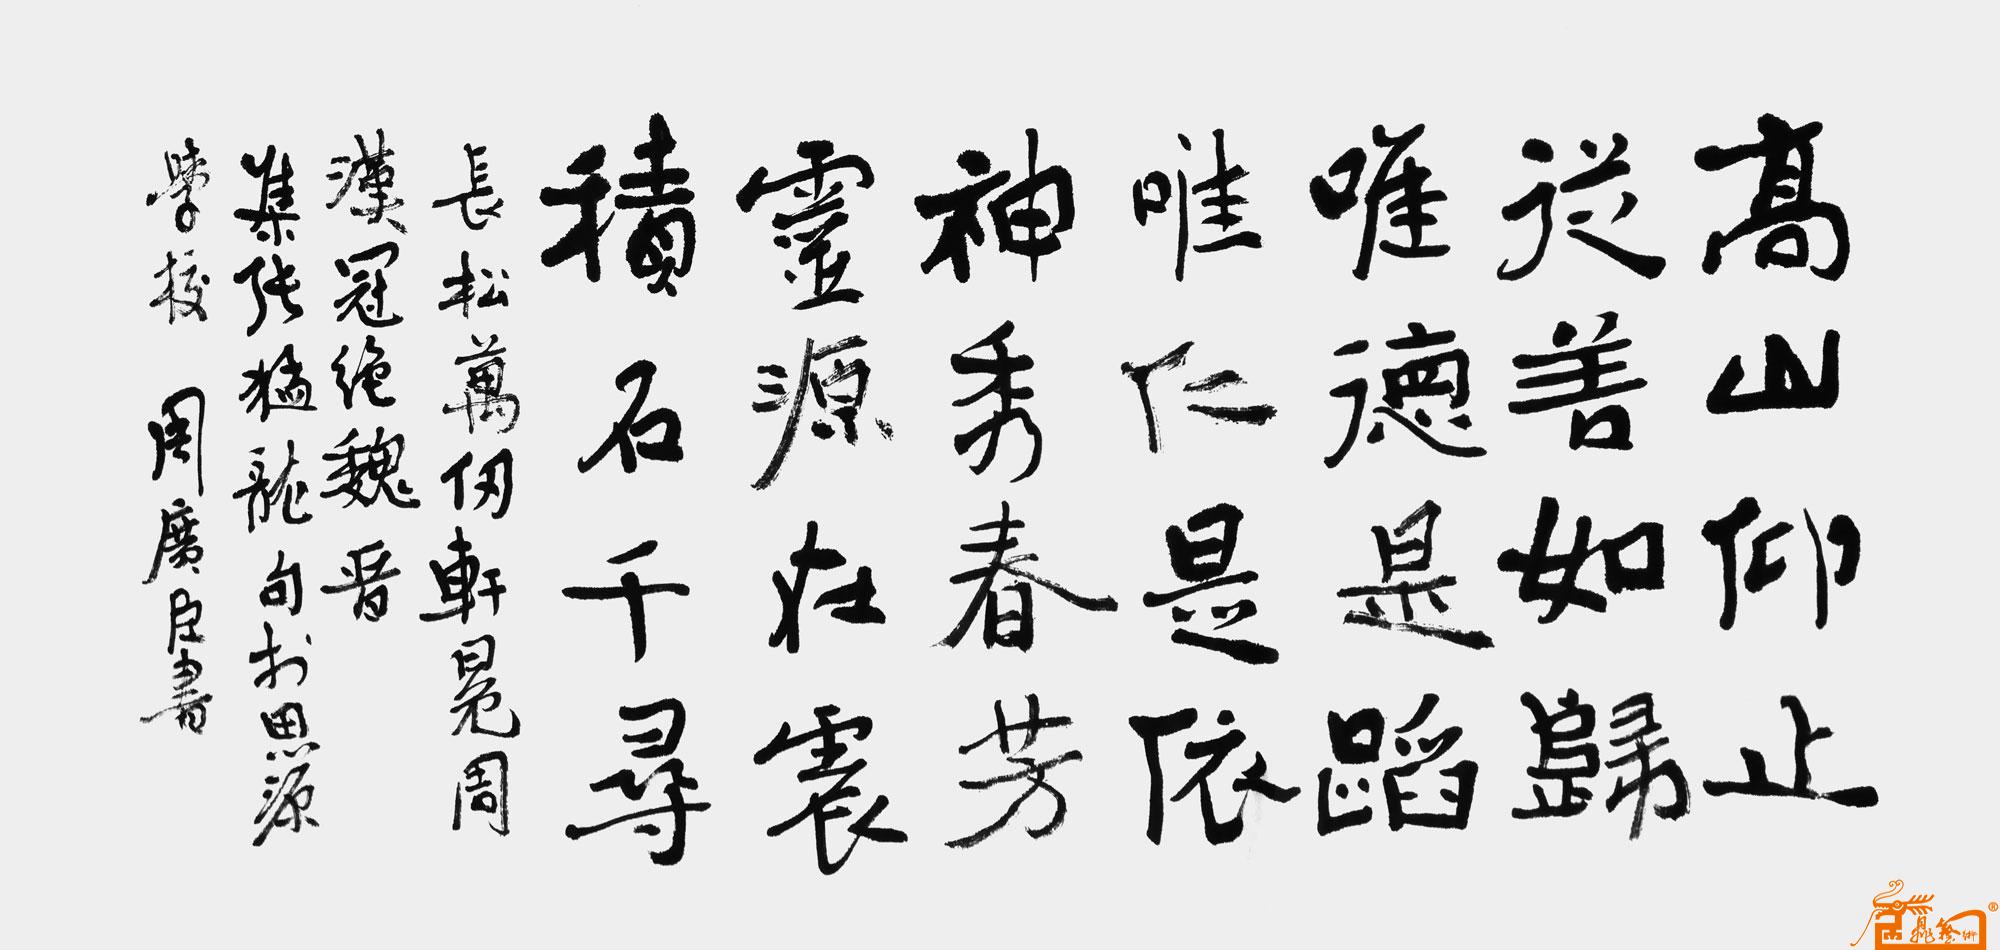 高山仰止
從善如歸
唯德是蹈
唯仁是依
神秀春芳
靈源在震
積石千尋
長松萬仞軒冕周
漢冠絶魏晋
集张猛龍句于思源
學校 周廣臣書